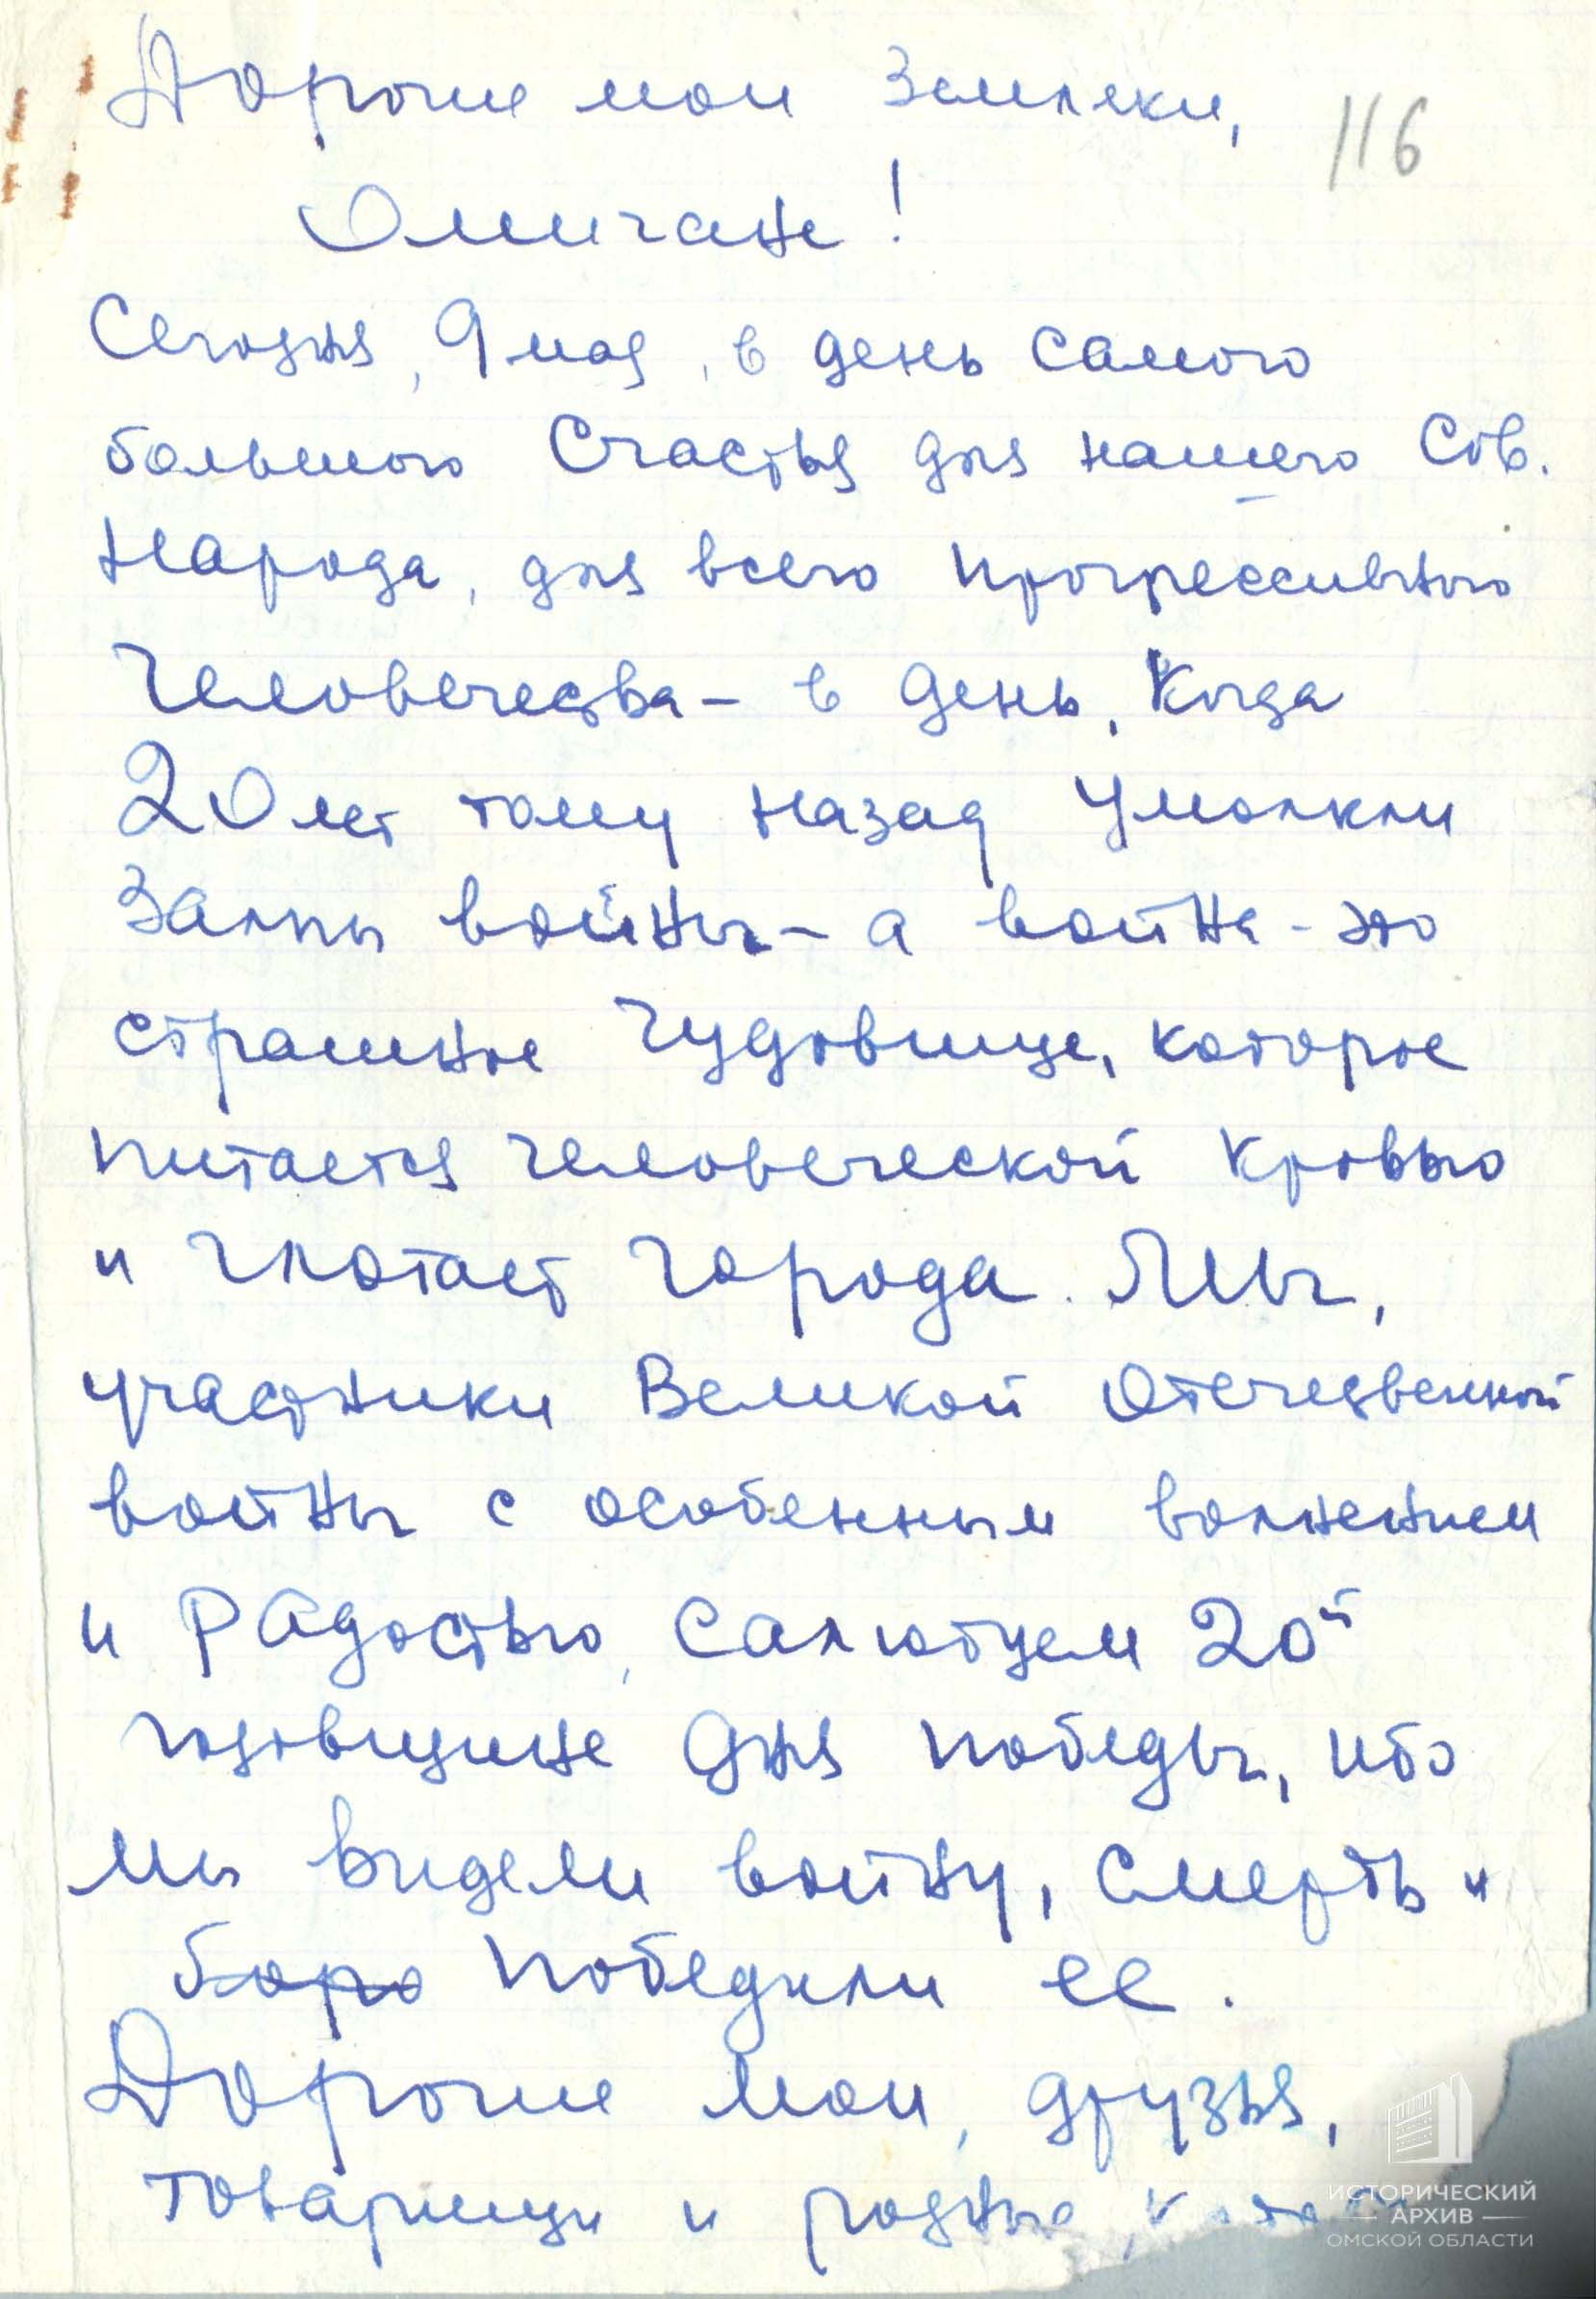 Дорогие мои земляки,
116
Омичане!
Сегодня, 9 мая, в день самого
большого счастья для нашего Сов.
народа, для всего прогрессивного
человечества – в день, когда
20 лет тому назад умолкли
залпы войны – а война – это
страшное чудовище, которое
питается человеческой кровью
и глотает города. Мы,
участники Великой Отечественной
войны с особенным волнением
и радостью, салютуем 20й
годовщине дня победы, ибо
мы видели войну, смерть и
боро победили ее.
Дорогие мои, друзья,
товарищи и родные,
ИСТОРИЧЕСКИЙ
АРХИВ
ОМСКОЙ ОБЛАСТИ